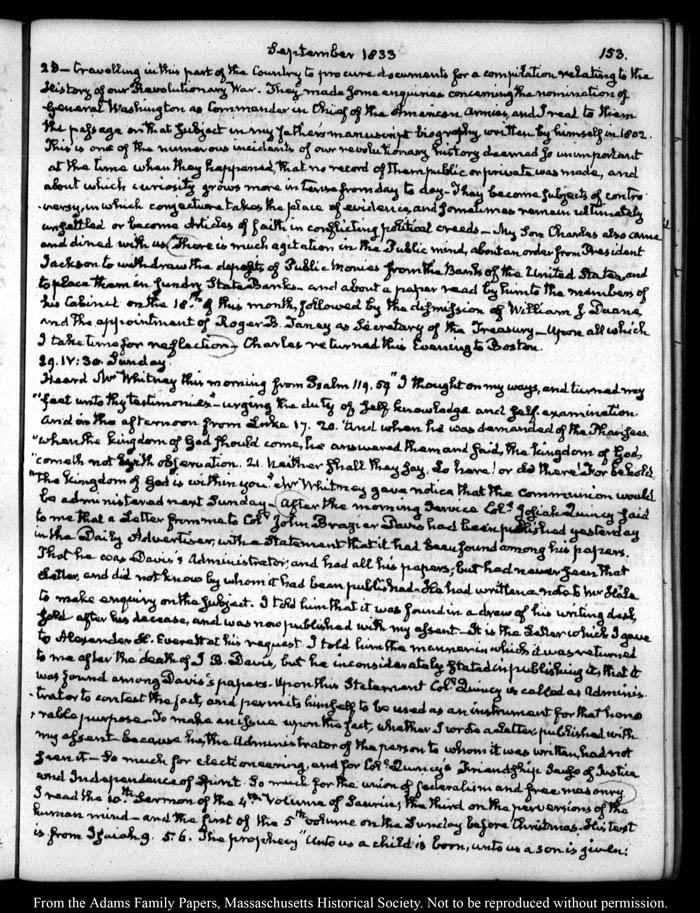 September 1833
153.
28 — travelling in this part of the Country to procure documents for a compilation relating to the
History of our Revolutionary War. They made some enquiries concerning the nomination of
General Washington as Commander in Chief of the American Armies, and I read to them
the passage on that subject in my father's manuscript biography, written by himself in 1802.
This is one of the numerous incidents of our revolutionary history deemed so unimportant
at the time when they happened, that no record of them public or private was made, and
about which curiosity grows more intense from day to day — They become subjects of contro
versy, in which conjecture takes the place of evidence, and sometimes remain ultimately
unsettled or become Articles of faith in conflicting political creeds — My Son Charles also came
and dined with us. There is much agitation in the Public mind, about an order from President
Jackson to withdraw the deposits of Public Monies from the Bank of the United States, and
to place them in sundry State Banks — and about a paper read by him to the members of
his Cabinet on the 18th of this month, followed by the dismission of William J. Duane,
and the appointment of Roger B. Taney as Secretary of the Treasury — Upon all which
I take time for reflection — Charles returned this Evening to Boston.
29. IV:30. Sunday.
Heard Mr Whitney this morning from Psalm 119. 59 "I thought on my ways, and turned my
"feet unto thy testimonies" — urging the duty of self knowledge and self examination.
And in the afternoon from Luke 17. 20. "And when he was demanded of the Pharisees
"when the kingdom of God should come, he answered them and said, the kingdom of God,
"cometh not with observation. 21. Neither shall they say, Lo here! or Lo there! For behold
"the kingdom of God is within you." Mr Whitney gave notice that the Communion would
be administered next Sunday — After the morning service Coll Josiah Quincy said
to me that a Letter from me to Coll John Brazier Davis had been published yesterday
in the Daily Advertiser, with a Statement that it had been found among his papers.
That he was Davis's Administrator, and had all his papers; but had never seen that
Letter, and did not know by whom it had been published. He had written a note to Mr Hale
to make enquiry on the subject. I told him that it was found in a draw of his writing desk,
sold after his decease, and was now published with my assent — It is the Letter which I gave
to Alexander H. Everett at his request. I told him the manner in which it was returned
to me after the death of J. B. Davis, but he inconsiderately stated in publishing it, that it
was found among Davis's papers. Upon this Statement Coll Quincy is called as Adminis
trator to contest the fact, and permits himself to be used as an instrument for that hono
rable purpose — To make an issue upon the fact, whether I wrote a Letter published with
my assent because he, the Administrator of the person to whom it was written, had not
seen it — So much for electioneering, and for Coll Quincy's Friendship Sense of Justice
and Independence of Spirit. So much for the union of federalism and free masonry
I read the 10th Sermon of the 4th Volume of Saurin, the third on the perversions of the
human mind — and the first of the 5th volume on the Sunday before Christmas. His text
is from Isaiah 9. 5. 6. The prophecy "Unto us a child is born, unto us a son is given:
From the Adams Family Papers, Massachusetts Historical Society. Not to be reproduced without permission.